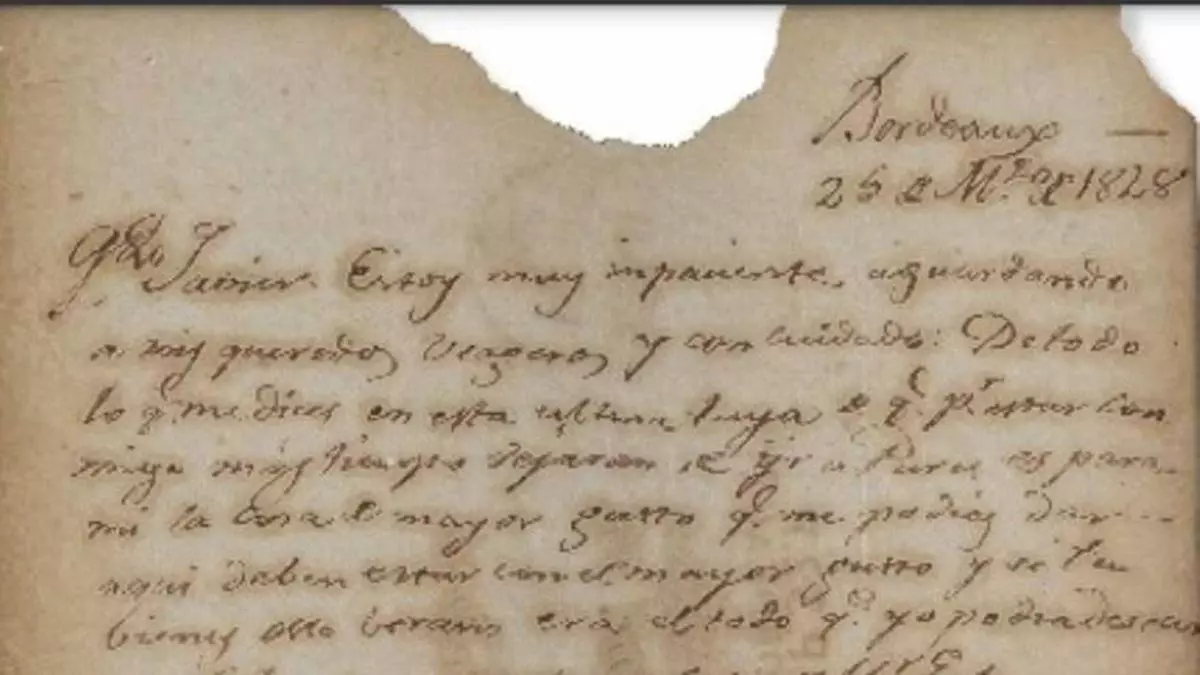 Bordeaux —
26 de M.zo de 1828
Qdo Javier. Estoy muy inpaciente, aguardando
a mis queredos viageros y con cuidado: De todo
lo q.e me dices en esta ultima tuya de q.e p.r estar con
migo mas tienpo dejaran de yr a Paris es para
mi la cosa de mayor gusto q.e me podias dar
aqui deben estar con el mayor gusto y si tu
bienes este berano era el todo q.e yo podia desear